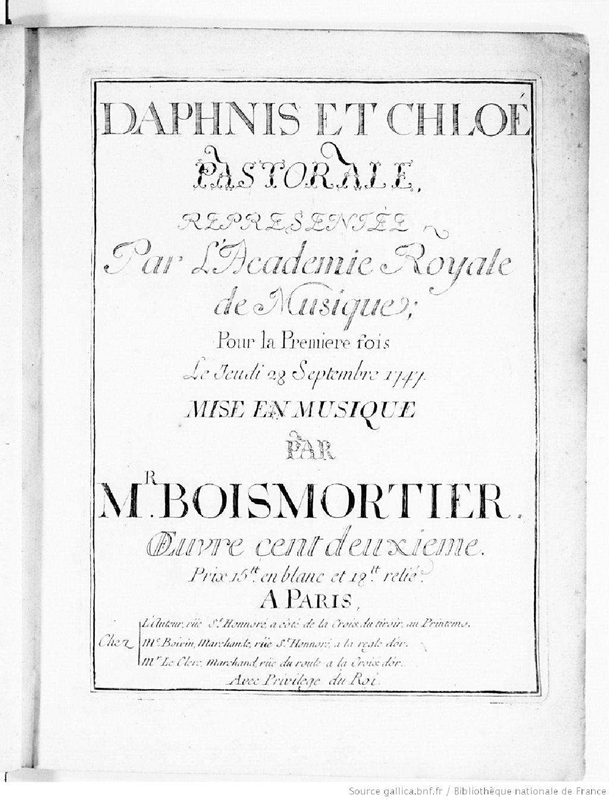 DAPHNIS ET CHLOÉ
PASTORALE,
REPRESENTÉE
Par L'Academie Royale
de Musique;
Pour la Premiere fois
Le Jeudi 28 Septembre 1747.
MISE EN MUSIQUE
PAR
MR. BOISMORTIER.
Œuvre cent deuxieme.
Prix 15tt. en blanc et 18tt. relié.
A PARIS,
Chez
L'Auteur, rüe St. Honnoré, a côté de la Croix du tiroir, au Printems.
Me. Boivin, Marchande, rüe St. Honnoré, a la regle d'or.
Mr. Le Clerc, Marchand, rüe du roule a la Croix d'or.
Avec Privilege du Roi.
Source gallica.bnf.fr / Bibliothèque nationale de France